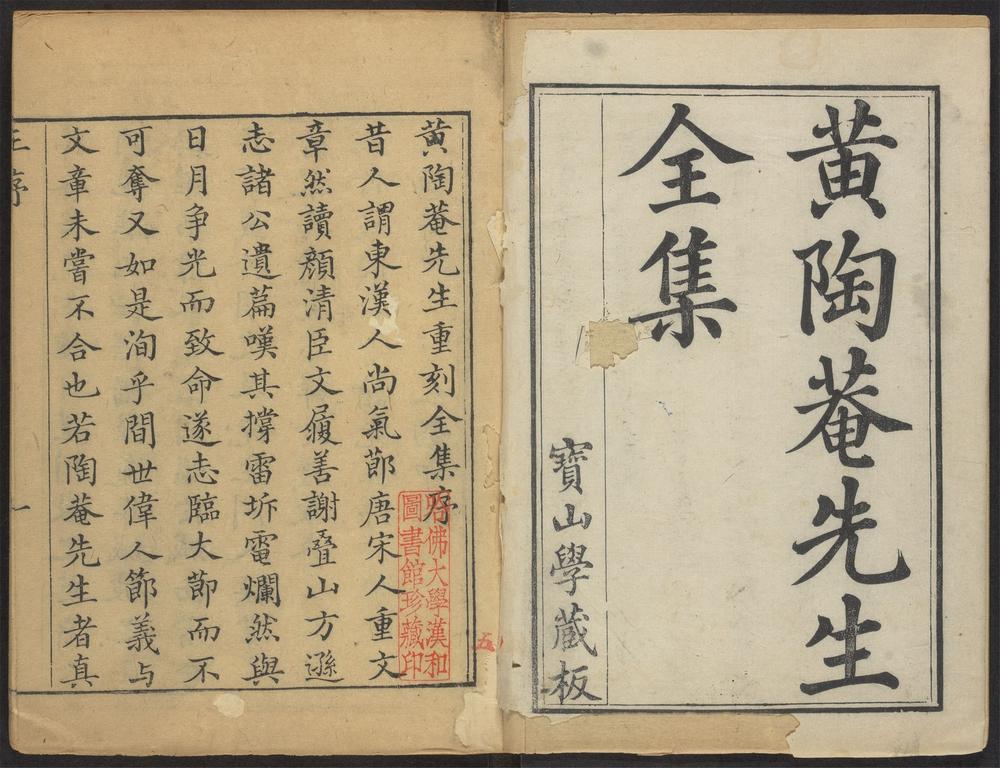 黃陶菴先生
全集
寶山學藏板
黃陶菴先生重刻全集序
昔人謂東漢人尚氣節唐宋人重文
章然讀顏清臣文履善謝疊山方遜
志諸公遺篇嘆其撐雷坼電爛然與
日月争光而致命遂志臨大節而不
可奪又如是洵乎間世偉人節義与
文章未嘗不合也若陶菴先生者真
王序
一
哈佛大學漢和
圖書館珍藏印
五